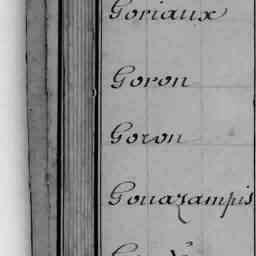 Goriaux
Goron
Goron
Gouazampis